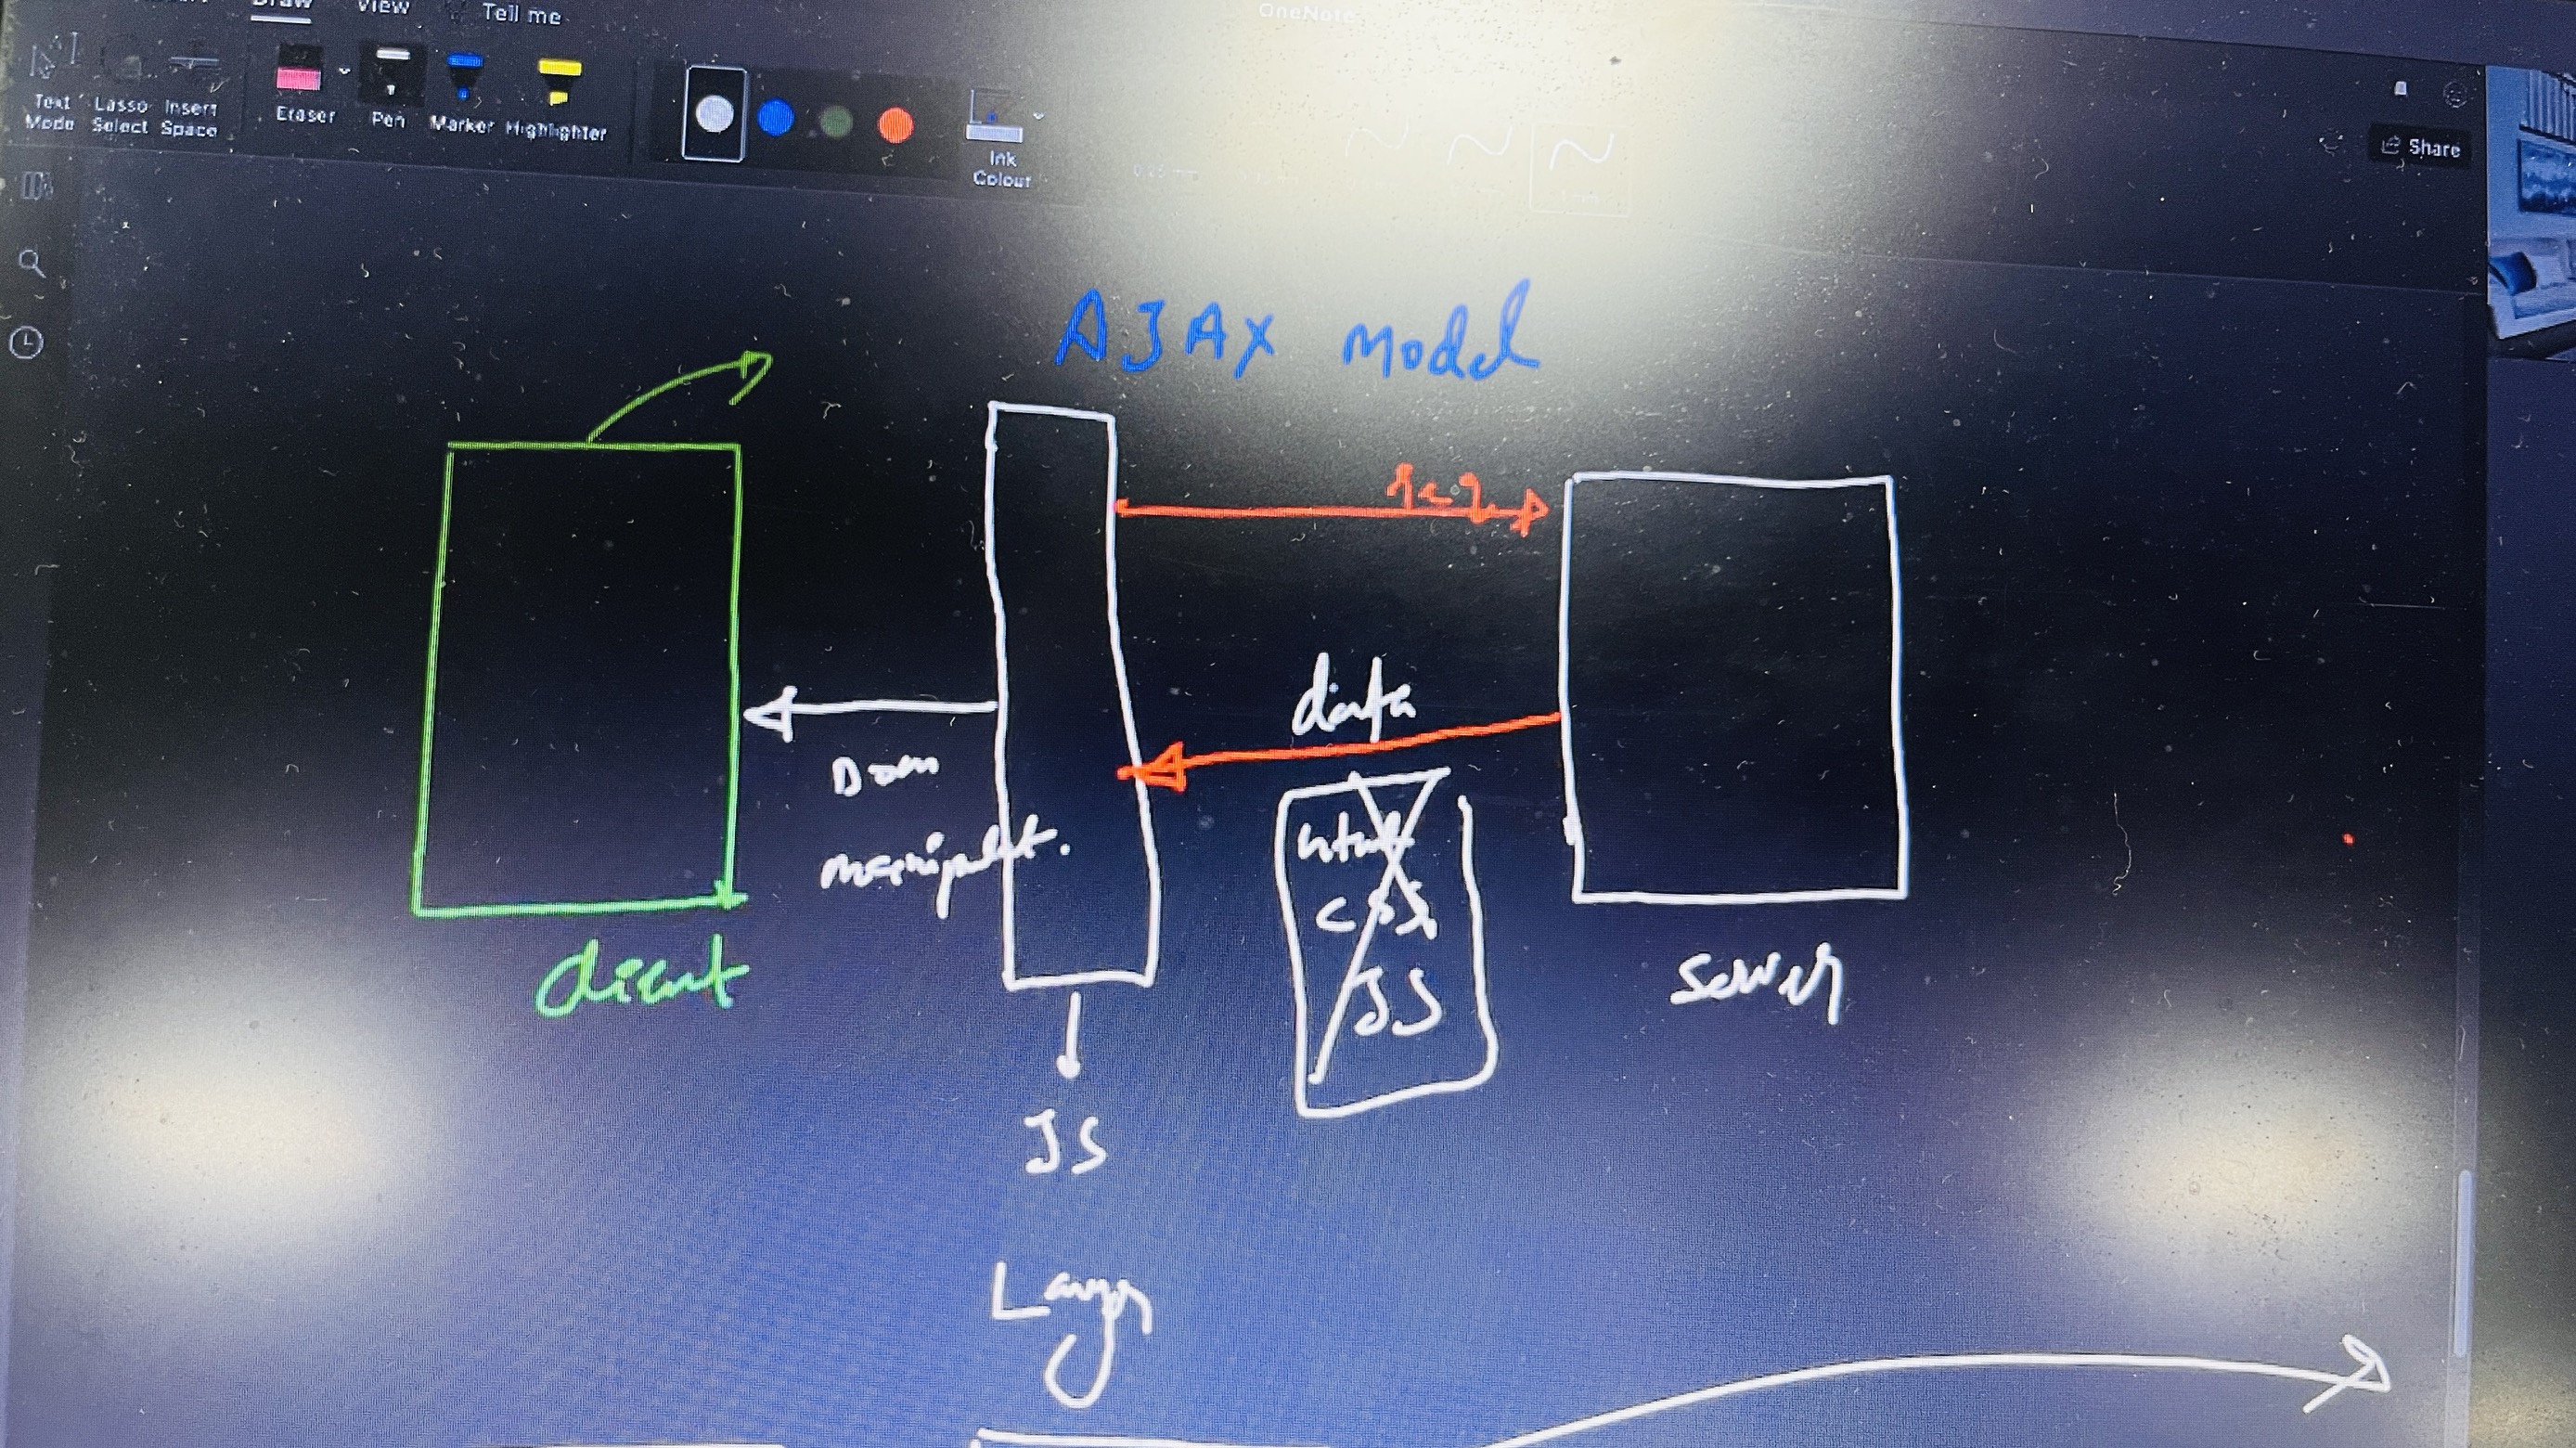 Draw
View
Tell me
OneNote
Text Mode
Lasso Select
Insert Space
Eraser
Pen
Marker
Highlighter
Ink Colour
Share
AJAX Model
req
data
Dom
manipulat.
html
css
JS
client
server
JS
Layer